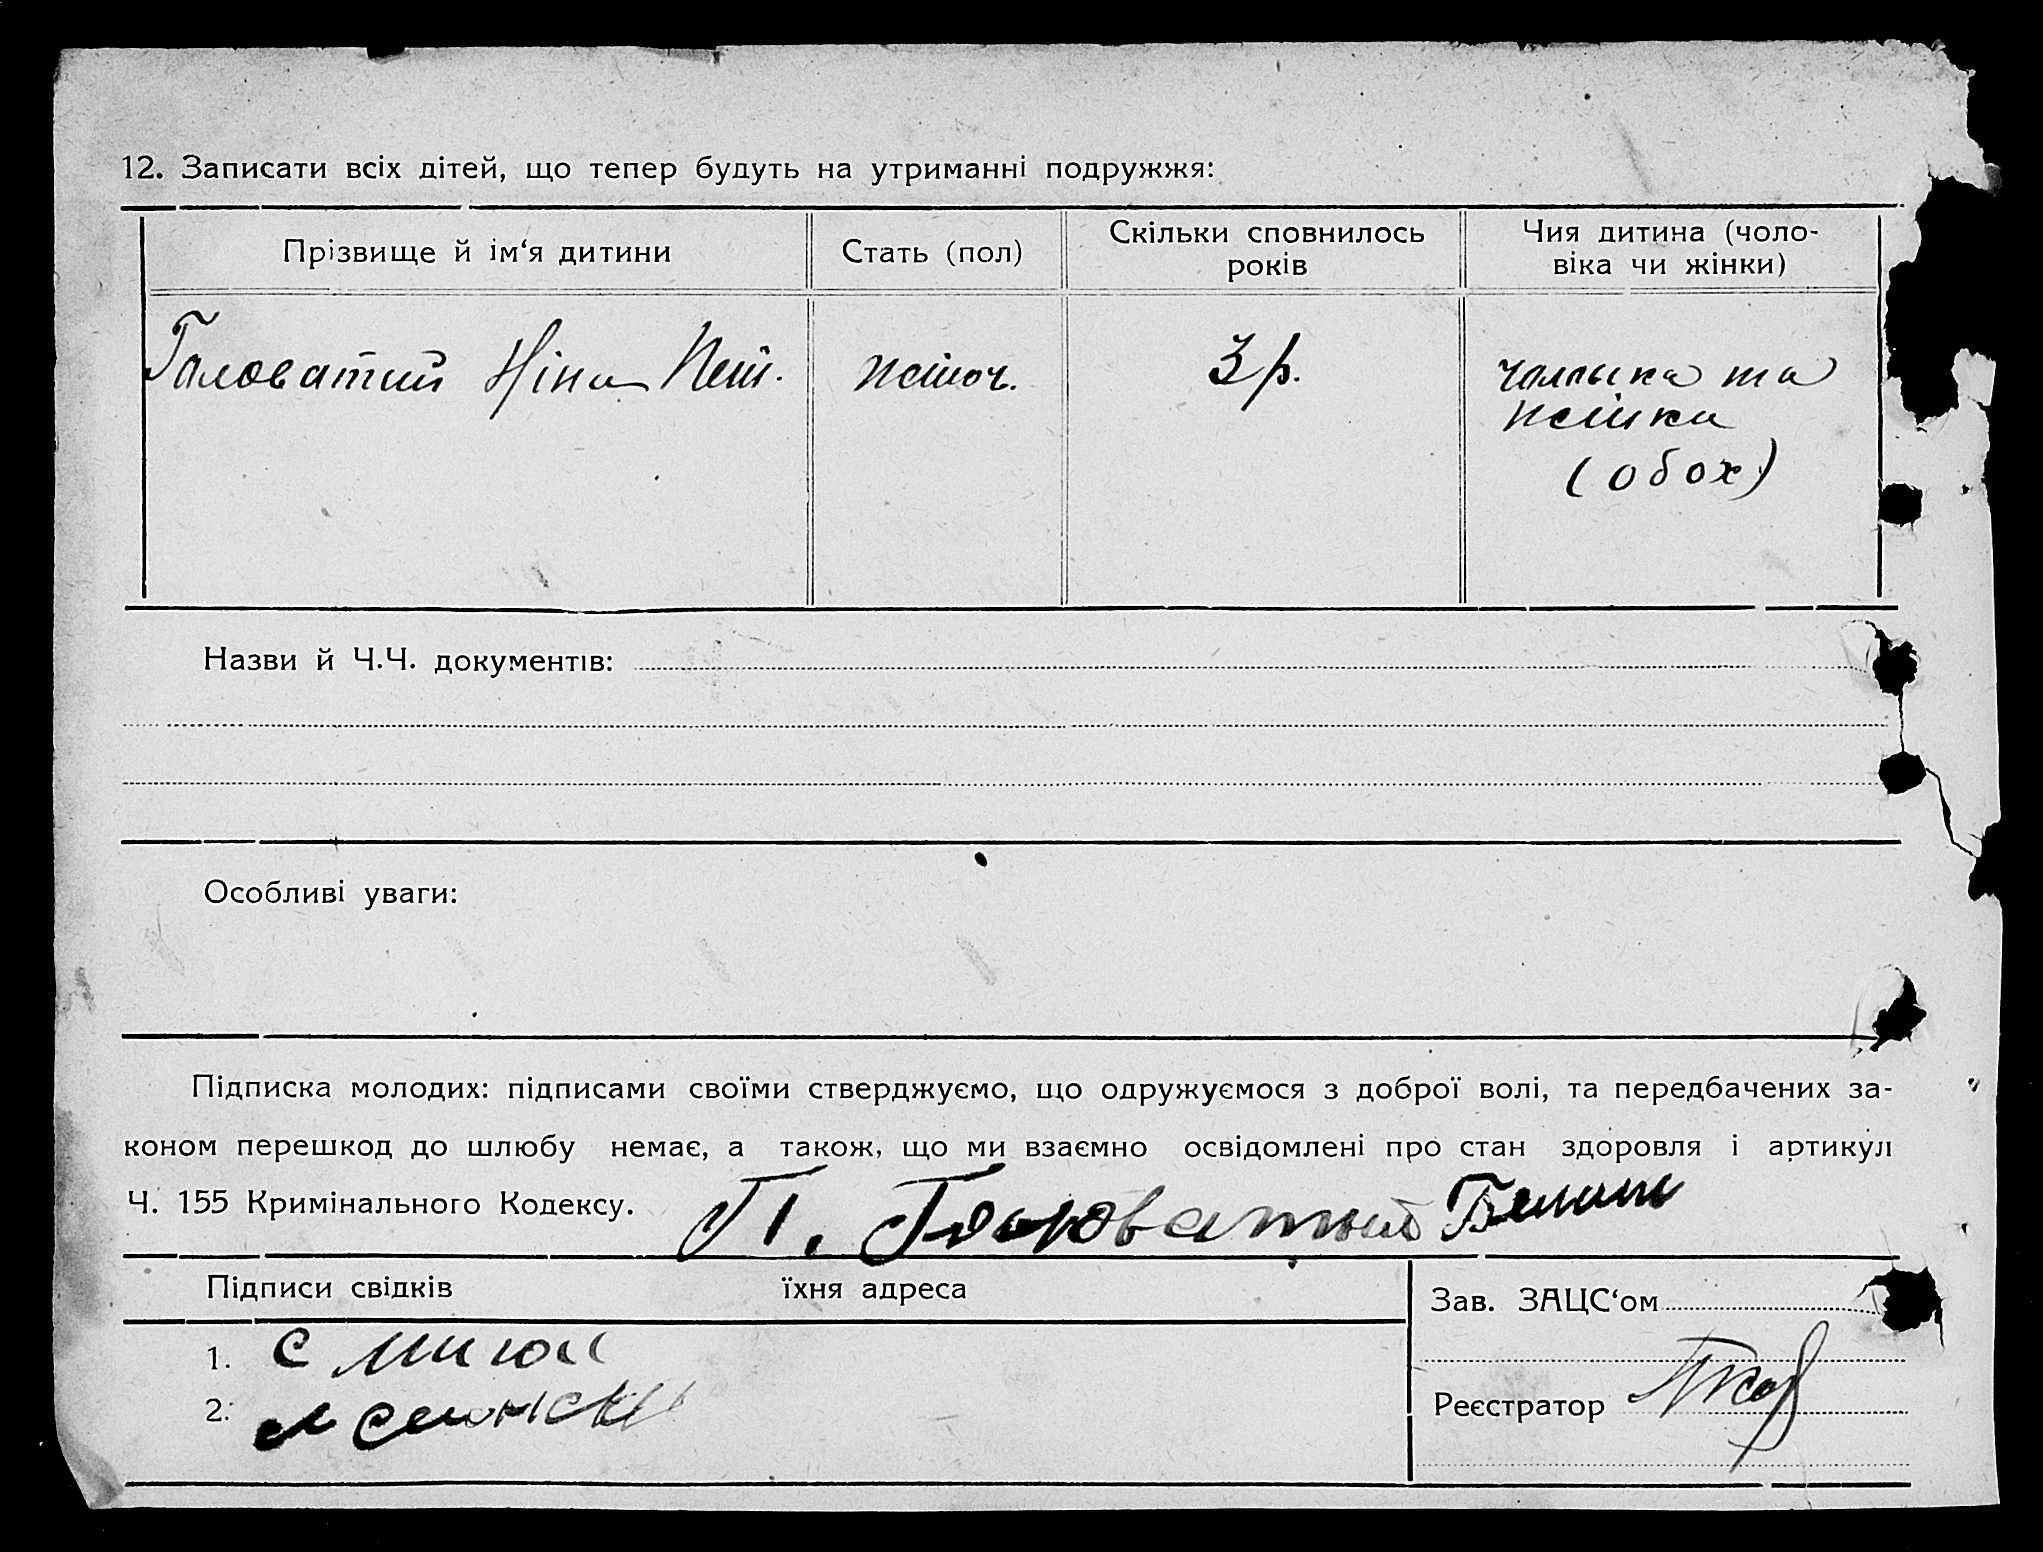 12. Записати всіх дітей, що тепер будуть на утриманні подружжя:
Прізвище й ім‘я дитини
Стать (пол)
Скільки сповнилось
років
Чия дитина (чоло-
віка чи жінки)
Головатий Ніна Пет.
жіноч.
3 р.
та
жінки
(обох)
Назви й Ч.Ч. документів:
Особливі уваги:
Підписка молодих: підписами своїми стверджуємо, що одружуємося з доброї волі, та передбачених за-
коном перешкод до шлюбу немає, а також, що ми взаємно освідомлені про стан здоровля і артикул
Ч. 155 Кримінального Кодексу. П. Головатий
Підписи свідків їхня адреса
Зав. ЗАЦС‘ом
1.
2.
Реєстратор